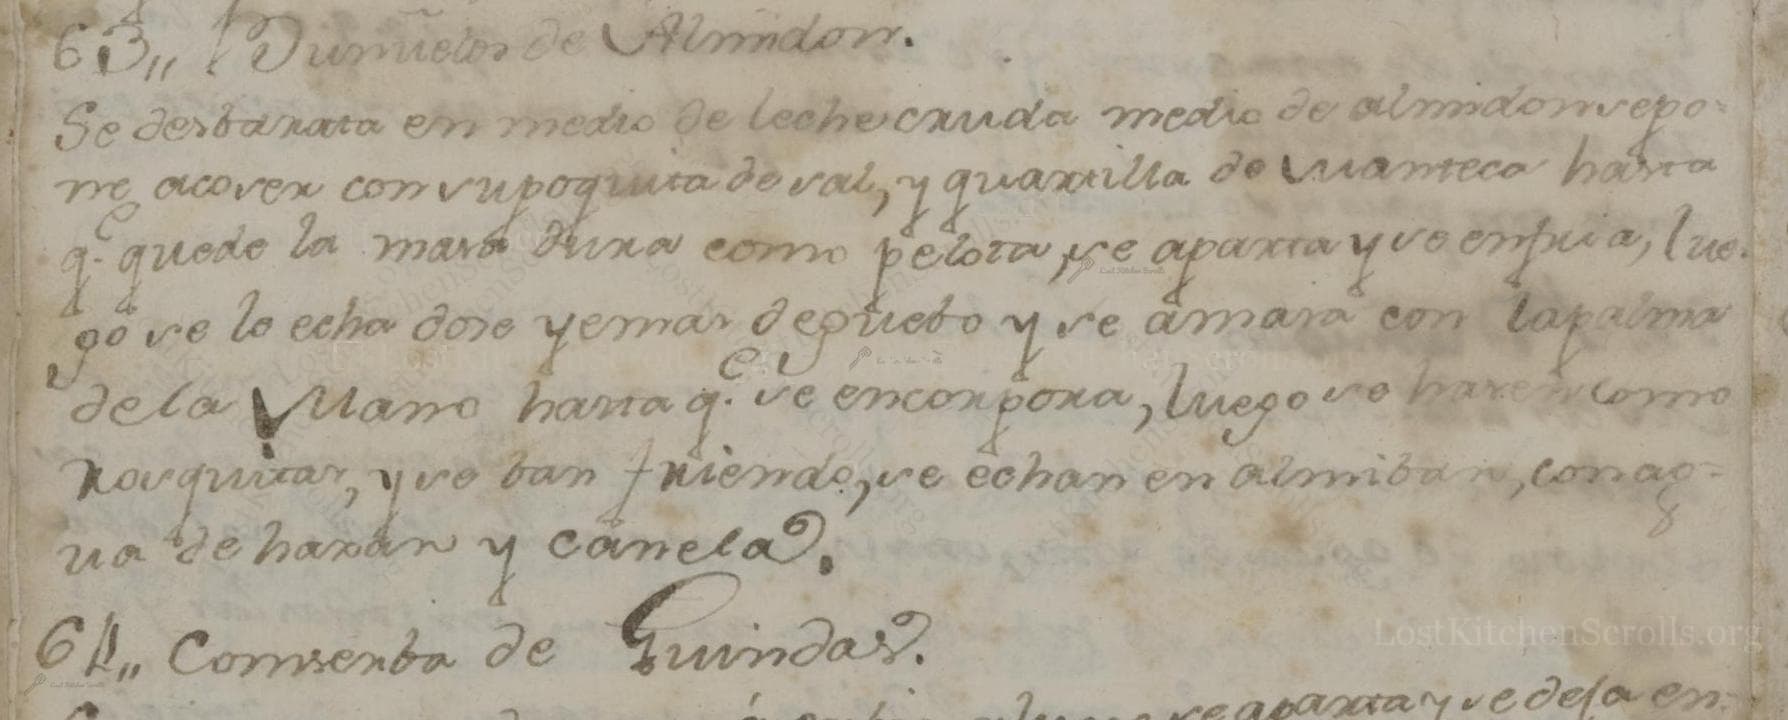 63,, Buñuelos de Almidon.
Se desbarata en medio de leche cruda medio de almidon se po-
ne acoser con su poquita de sal, y quartilla de Manteca hasta
q.e quede la masa dura como pelota, se aparta y se enfria, lue-
go se le echa dose yemas de guebo y se amasa con la palma
de la Mano hasta q.e se encorpora, luego se hasen como
rosquitas, y se ban friendo, se echan en almibar, con ag-
ua de hazar y canela.
64,, Comserba de Guindas.
se aparta y se deja en-
LostKitchenScrolls.org